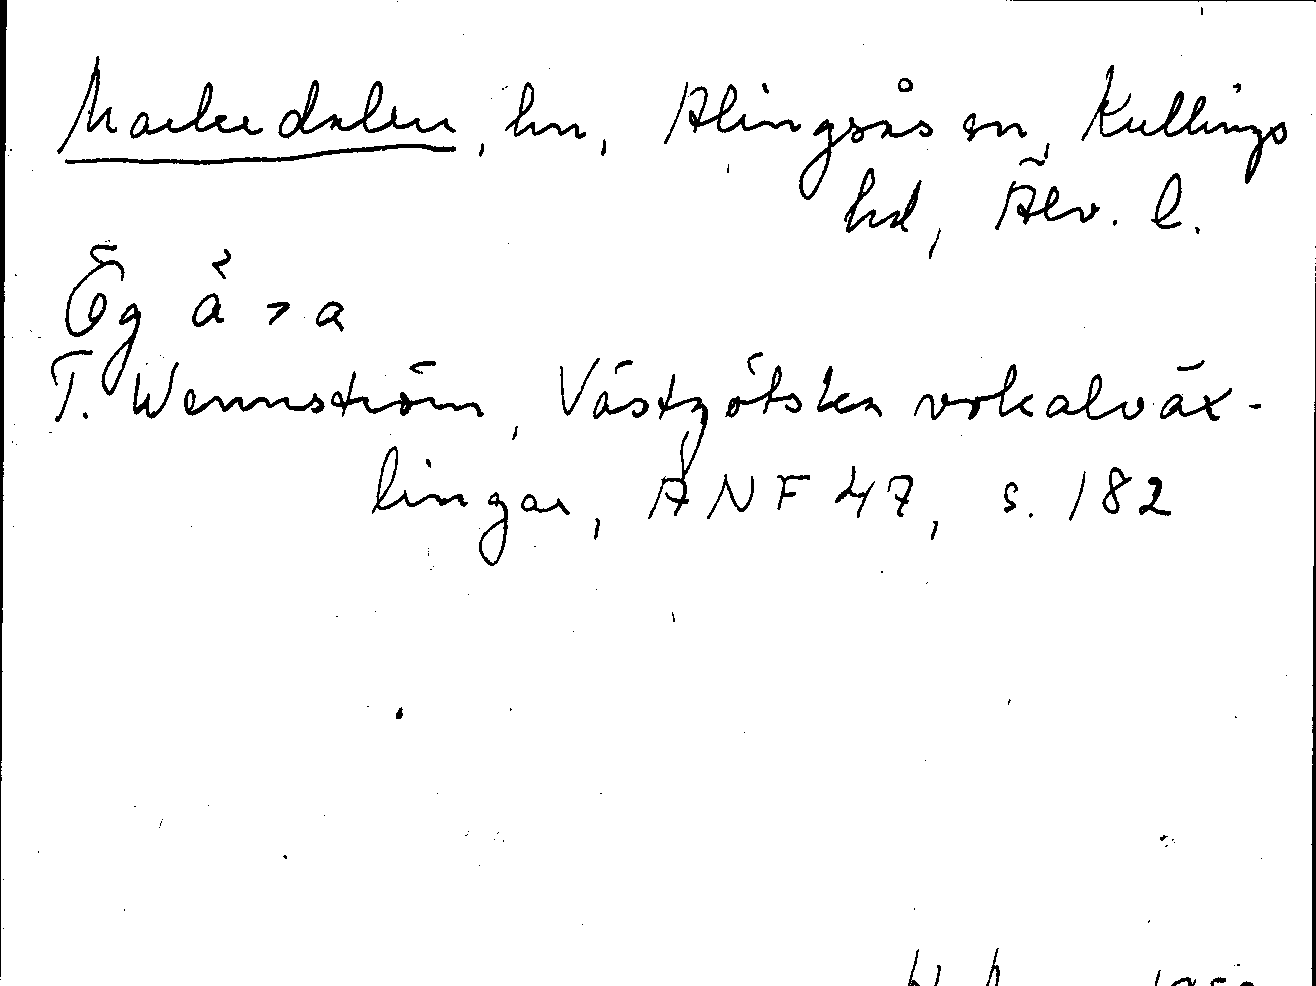 Markedalen, hn, Alingsås sn, Kullings
hd, Älv. l.
Ög ā̆ > a
T. Wennström, Västgötska vokalväx-
lingar, ANF 47, s. 182